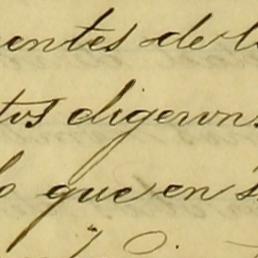 entes de l
tos digeron
o que en s